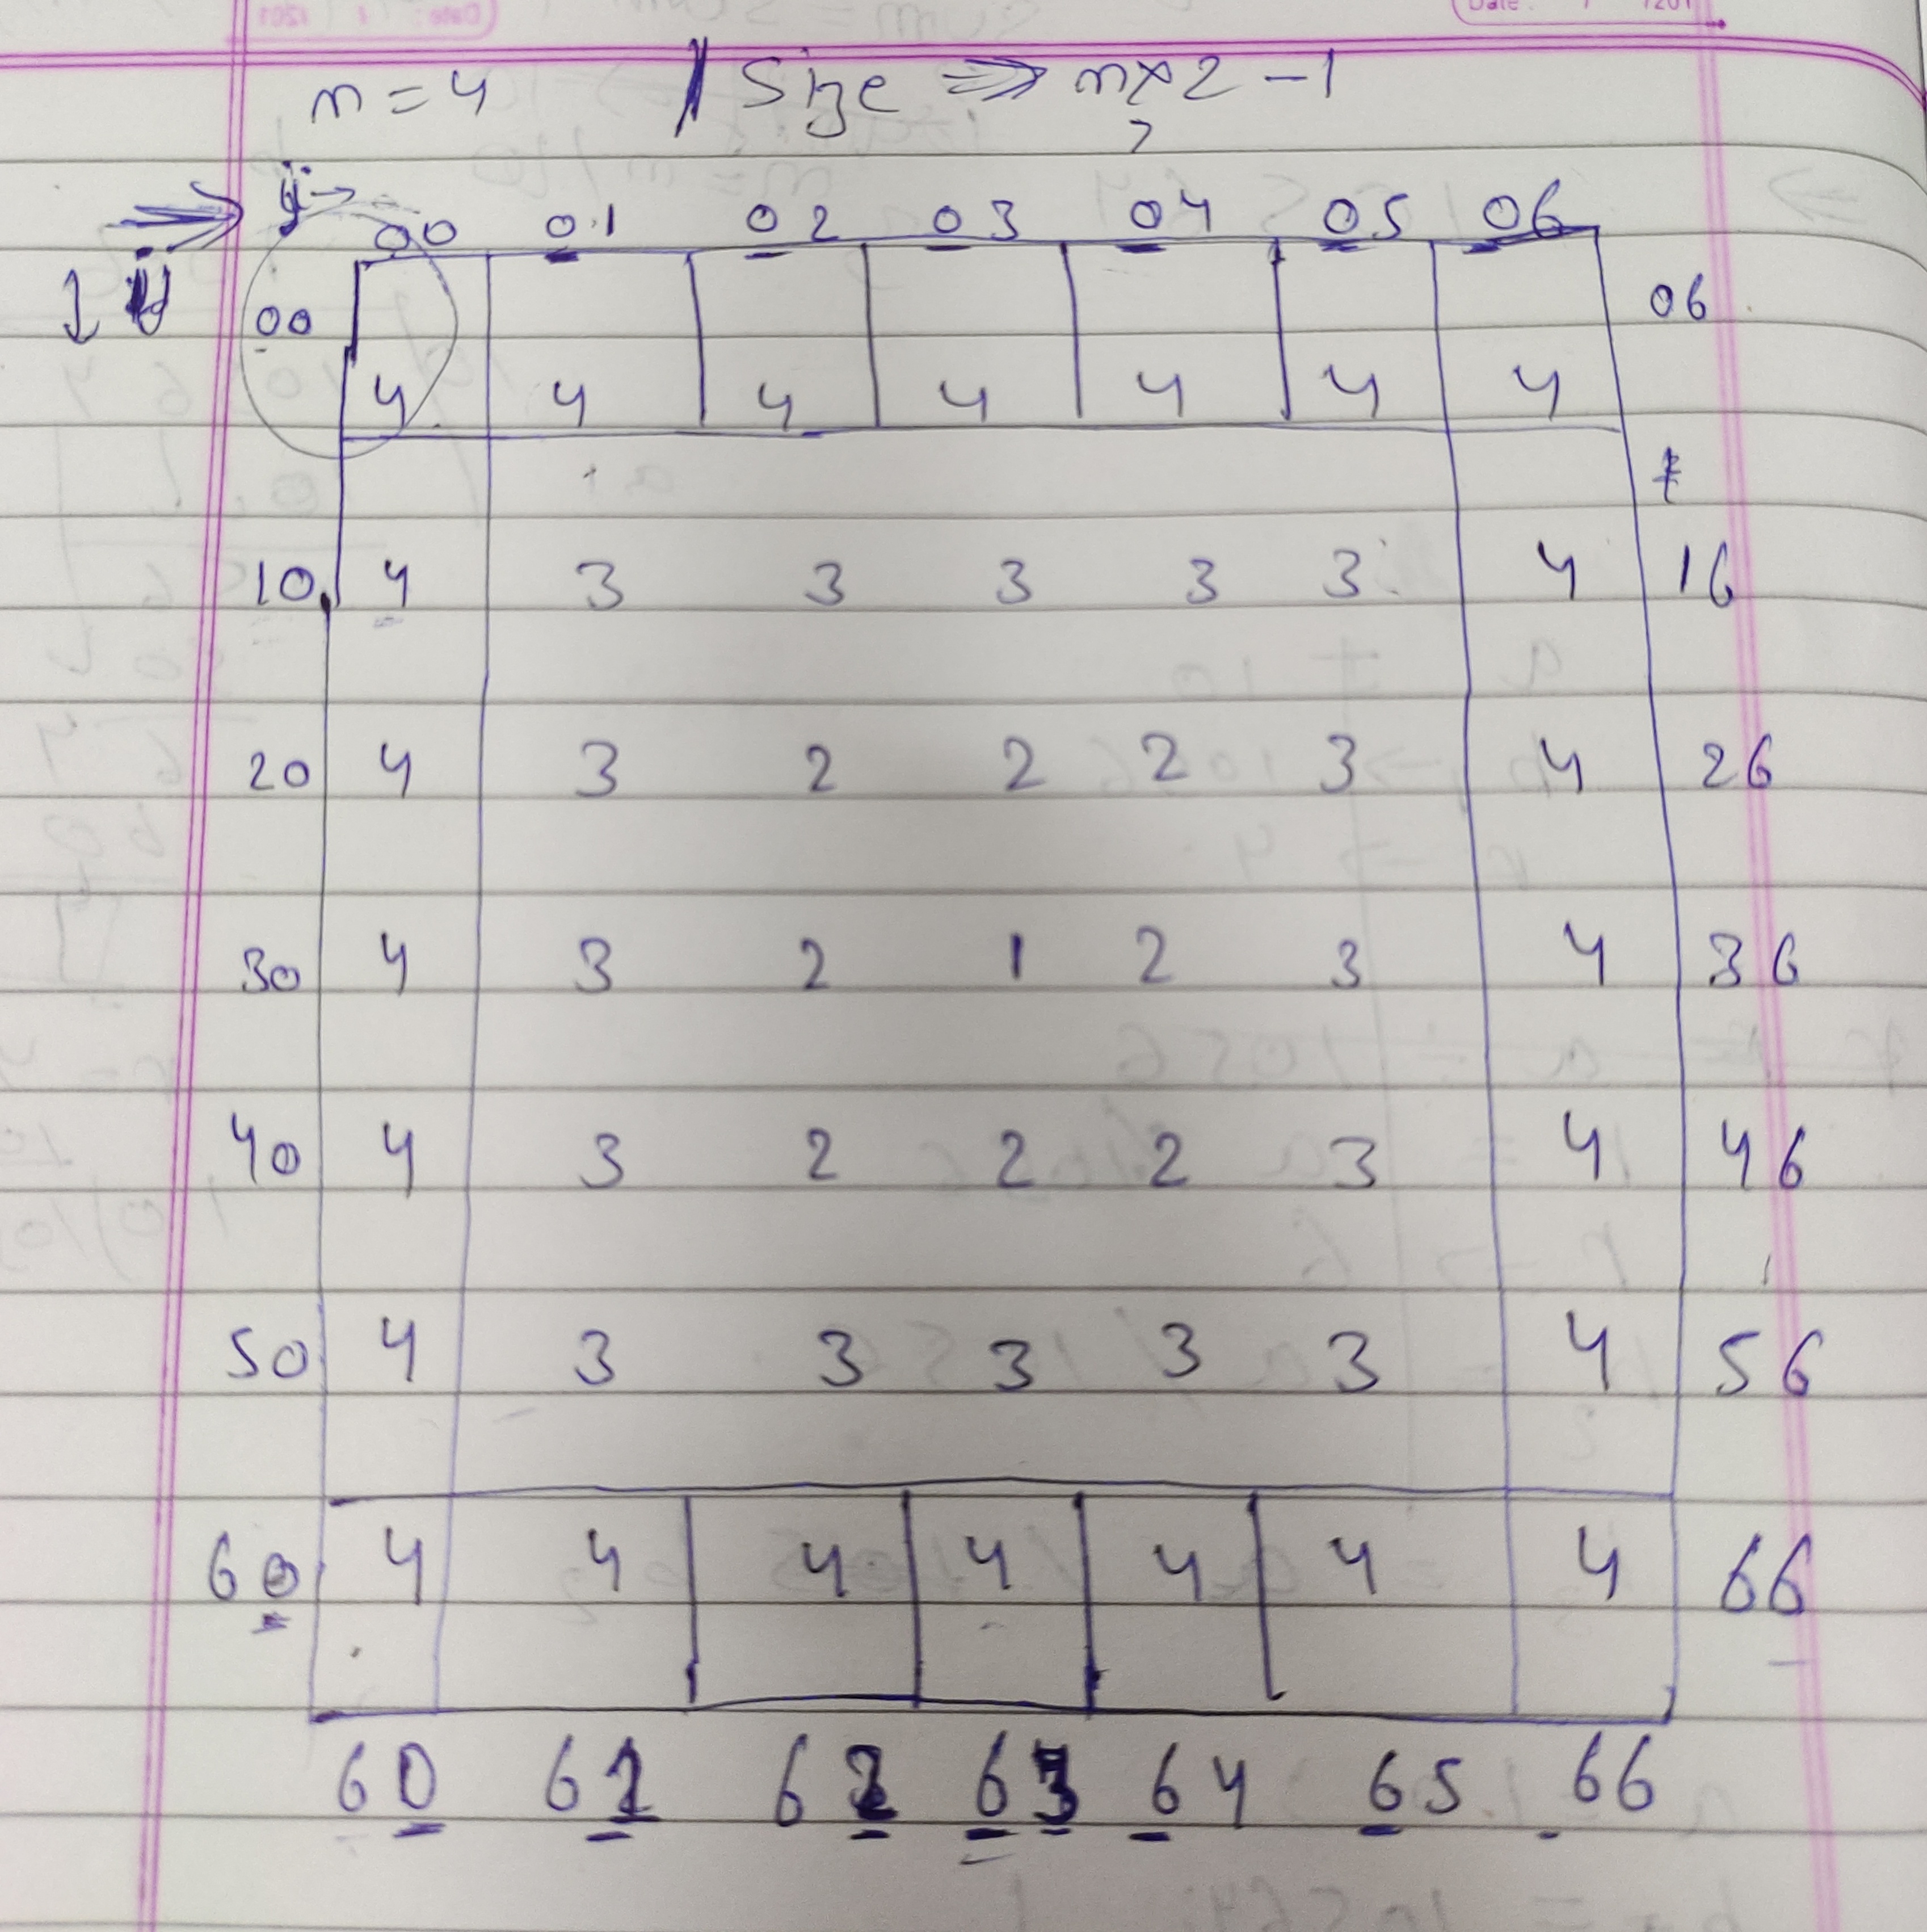 n = 4 | Size ⇒ n×2 - 1
j →
00 01 02 03 04 05 06
↓ 00 06
4 4 4 4 4 4 4
10 4 3 3 3 3 3 4 16
20 4 3 2 2 2 3 4 26
30 4 3 2 1 2 3 4 36
40 4 3 2 2 2 3 4 46
50 4 3 3 3 3 3 4 56
60 4 4 4 4 4 4 4 66
60 61 62 63 64 65 66